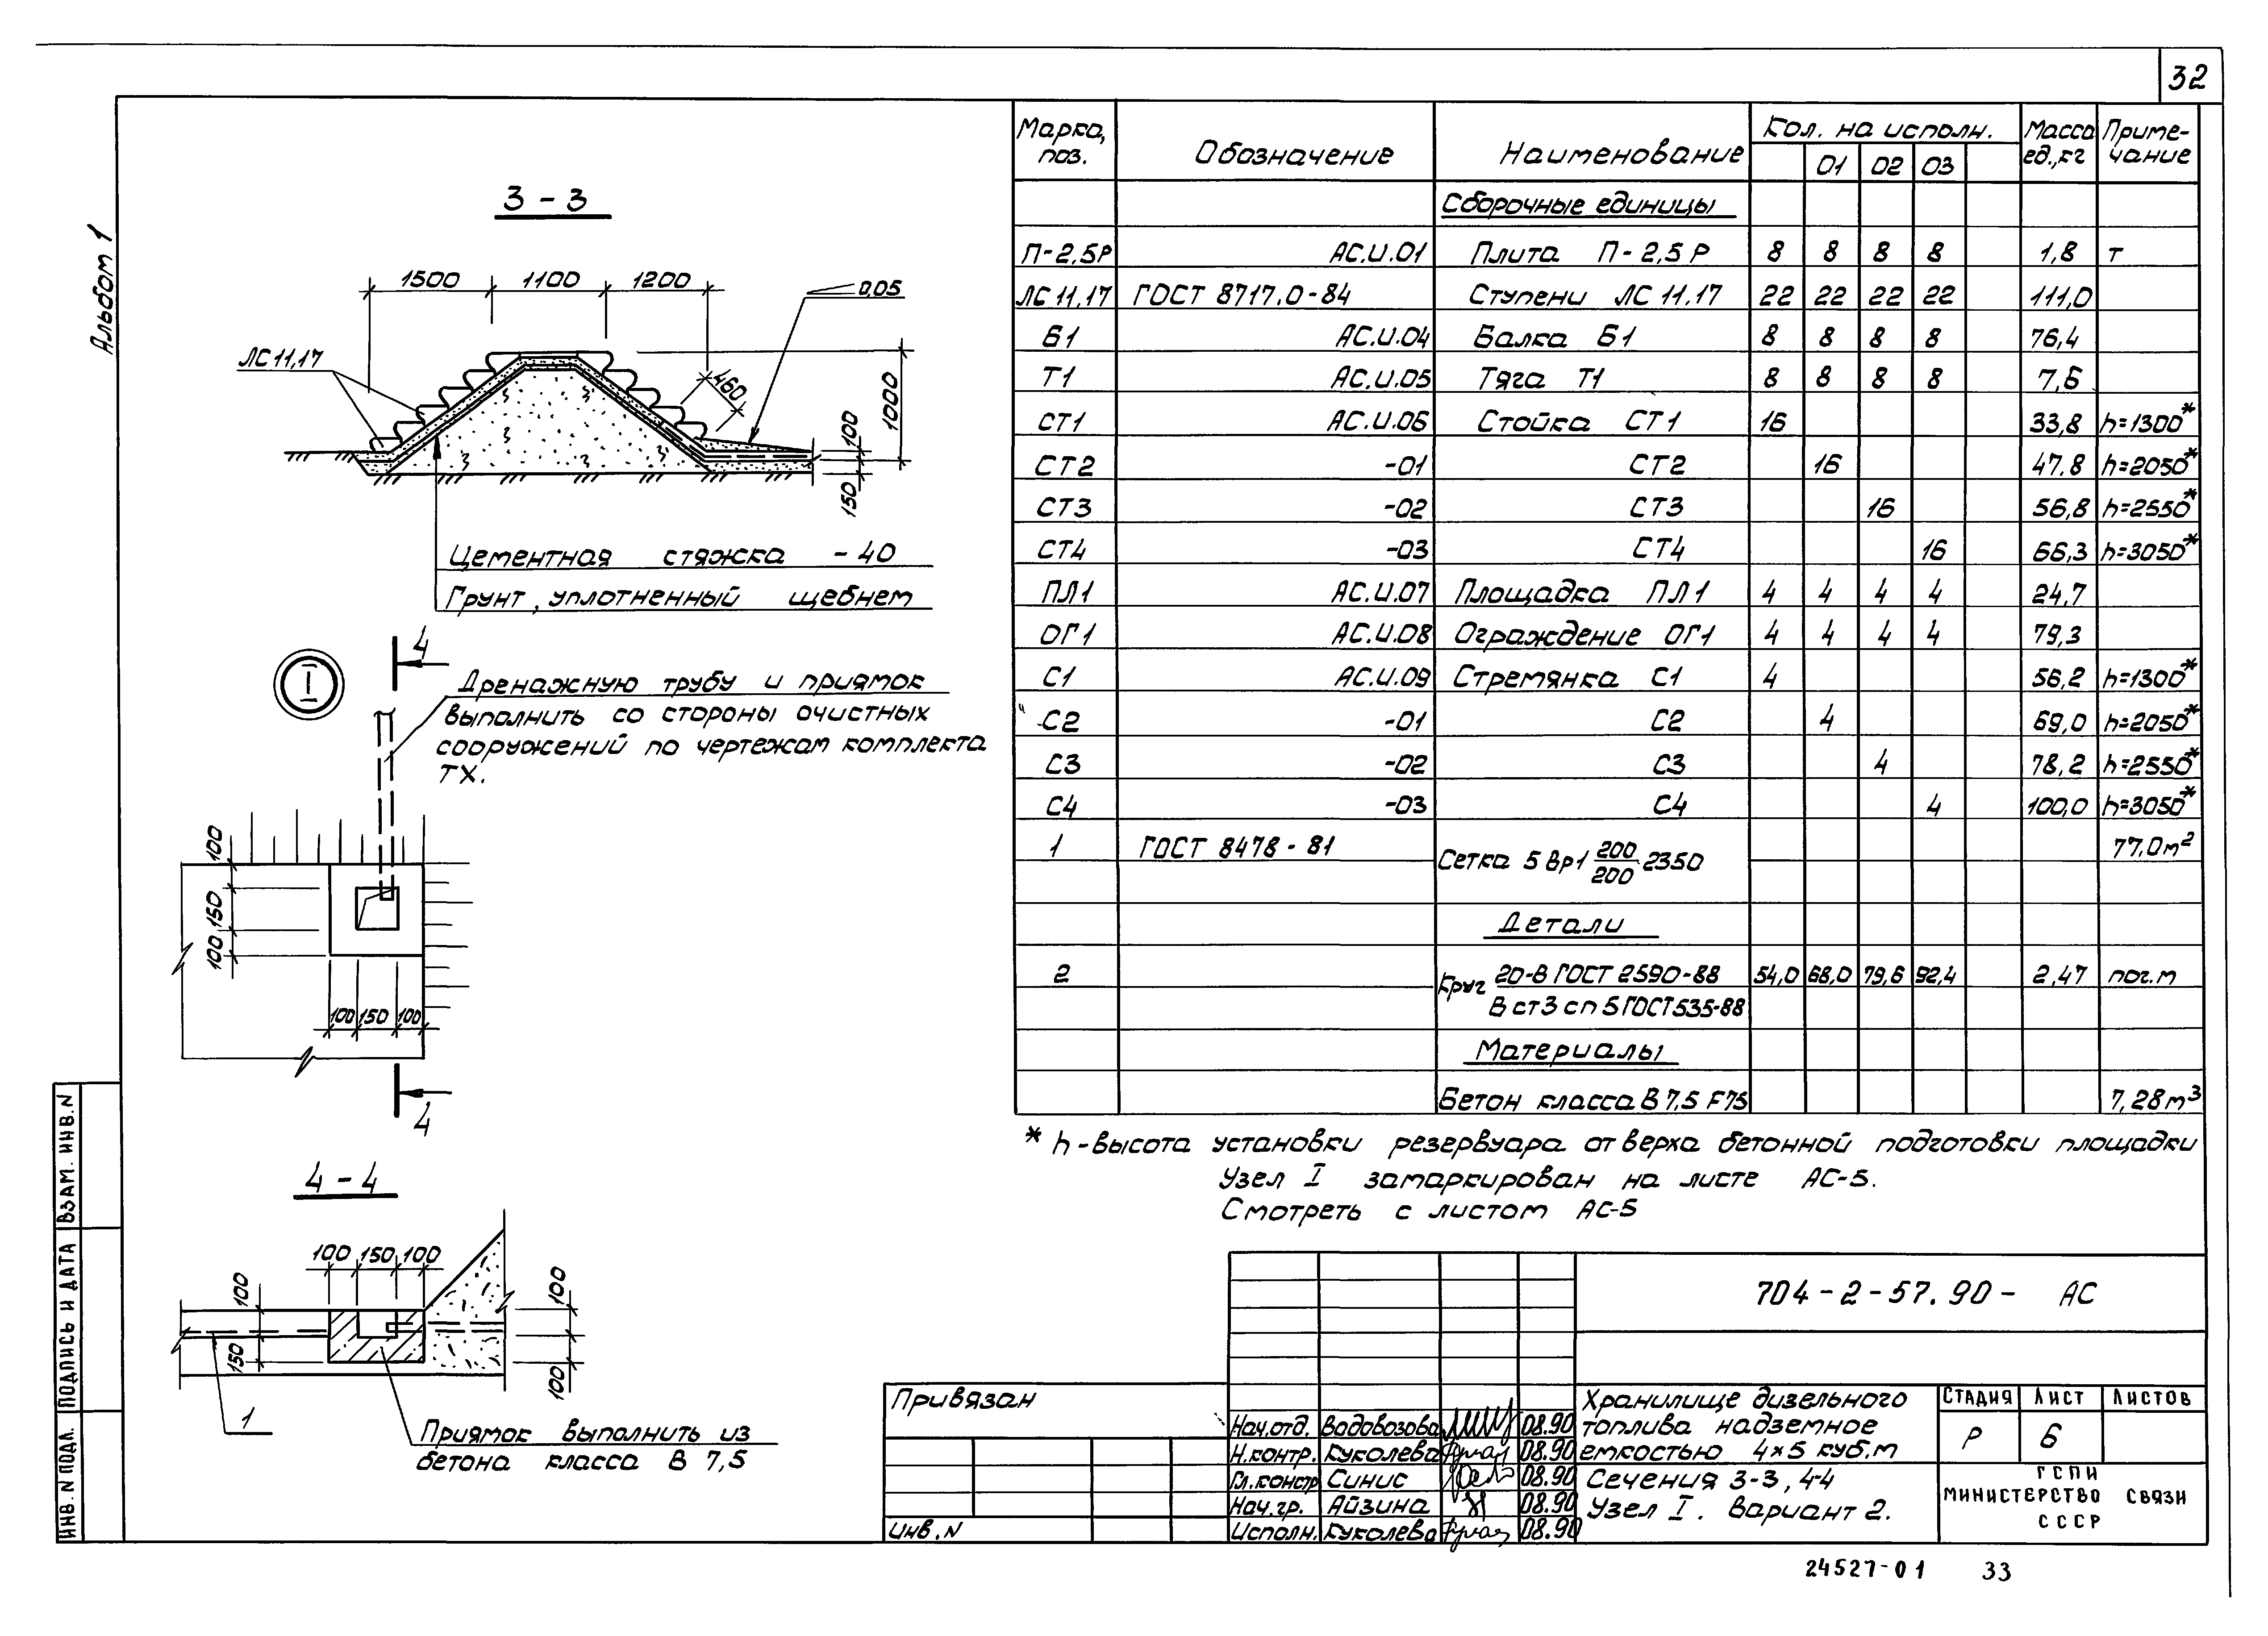 32
Альбом 1
3 - 3
1500 1100 1200
0,05
ЛС 11,17
460
1000
100
150
Цементная стяжка - 40
Грунт, уплотненный щебнем
I
4
Дренажную трубу и приямок
выполнить со стороны очистных
сооружений по чертежам комплекта
ТХ.
100
150
100
100 150 100
4
4 - 4
100 150 100
100
150
100
100
1
Приямок выполнить из
бетона класса В 7,5
Марка, поз. Обозначение Наименование Кол. на исполн. Масса ед.,кг Приме-чание
01 02 03
Сборочные единицы
П-2,5Р АС.И.01 Плита П-2,5Р 8 8 8 8 1,8 т
ЛС 11,17 ГОСТ 8717.0-84 Ступени ЛС 11.17 22 22 22 22 111,0
Б1 АС.И.04 Балка Б1 8 8 8 8 76,4
Т1 АС.И.05 Тяга Т1 8 8 8 8 7,6
СТ1 АС.И.06 Стойка СТ1 16 33,8 h=1300*
СТ2 -01 СТ2 16 47.8 h=2050*
СТ3 -02 СТ3 16 56,8 h=2550*
СТ4 -03 СТ4 16 66,3 h=3050*
ПЛ1 АС.И.07 Площадка ПЛ1 4 4 4 4 24,7
ОГ1 АС.И.08 Ограждение ОГ1 4 4 4 4 79,3
С1 АС.И.09 Стремянка С1 4 56,2 h=1300*
С2 -01 С2 4 69,0 h=2050*
С3 -02 С3 4 78,2 h=2550*
С4 -03 С4 4 100,0 h=3050*
1 ГОСТ 8478-81 Сетка 5 Вр1 200/200 2350 77,0м²
Детали
2 Круг 20-В ГОСТ 2590-88 54,0 68,0 79,6 92,4 2,47 пог.м
В ст3 сп 5 ГОСТ 535-88
Материалы
Бетон класса В 7,5 F75 7,28м³
* h-высота установки резервуара от верха бетонной подготовки площадки
Узел I замаркирован на листе АС-5.
Смотреть с листом АС-5
704-2-57.90- АС
Привязан
Инв.N
Нач.отд. Водовозова 08.90
Н.контр. Куколева 08.90
Гл.констр Синис 08.90
Нач.гр. Айзина 08.90
Исполн. Куколева 08.90
Хранилище дизельного
топлива надземное
емкостью 4×5 куб.м
Стадия Лист Листов
Р 6
Сечения 3-3, 4-4
Узел I. Вариант 2.
ГСПИ
Министерство связи
СССР
Инв. N подл. Подпись и дата Взам. инв. N
24527-01 33